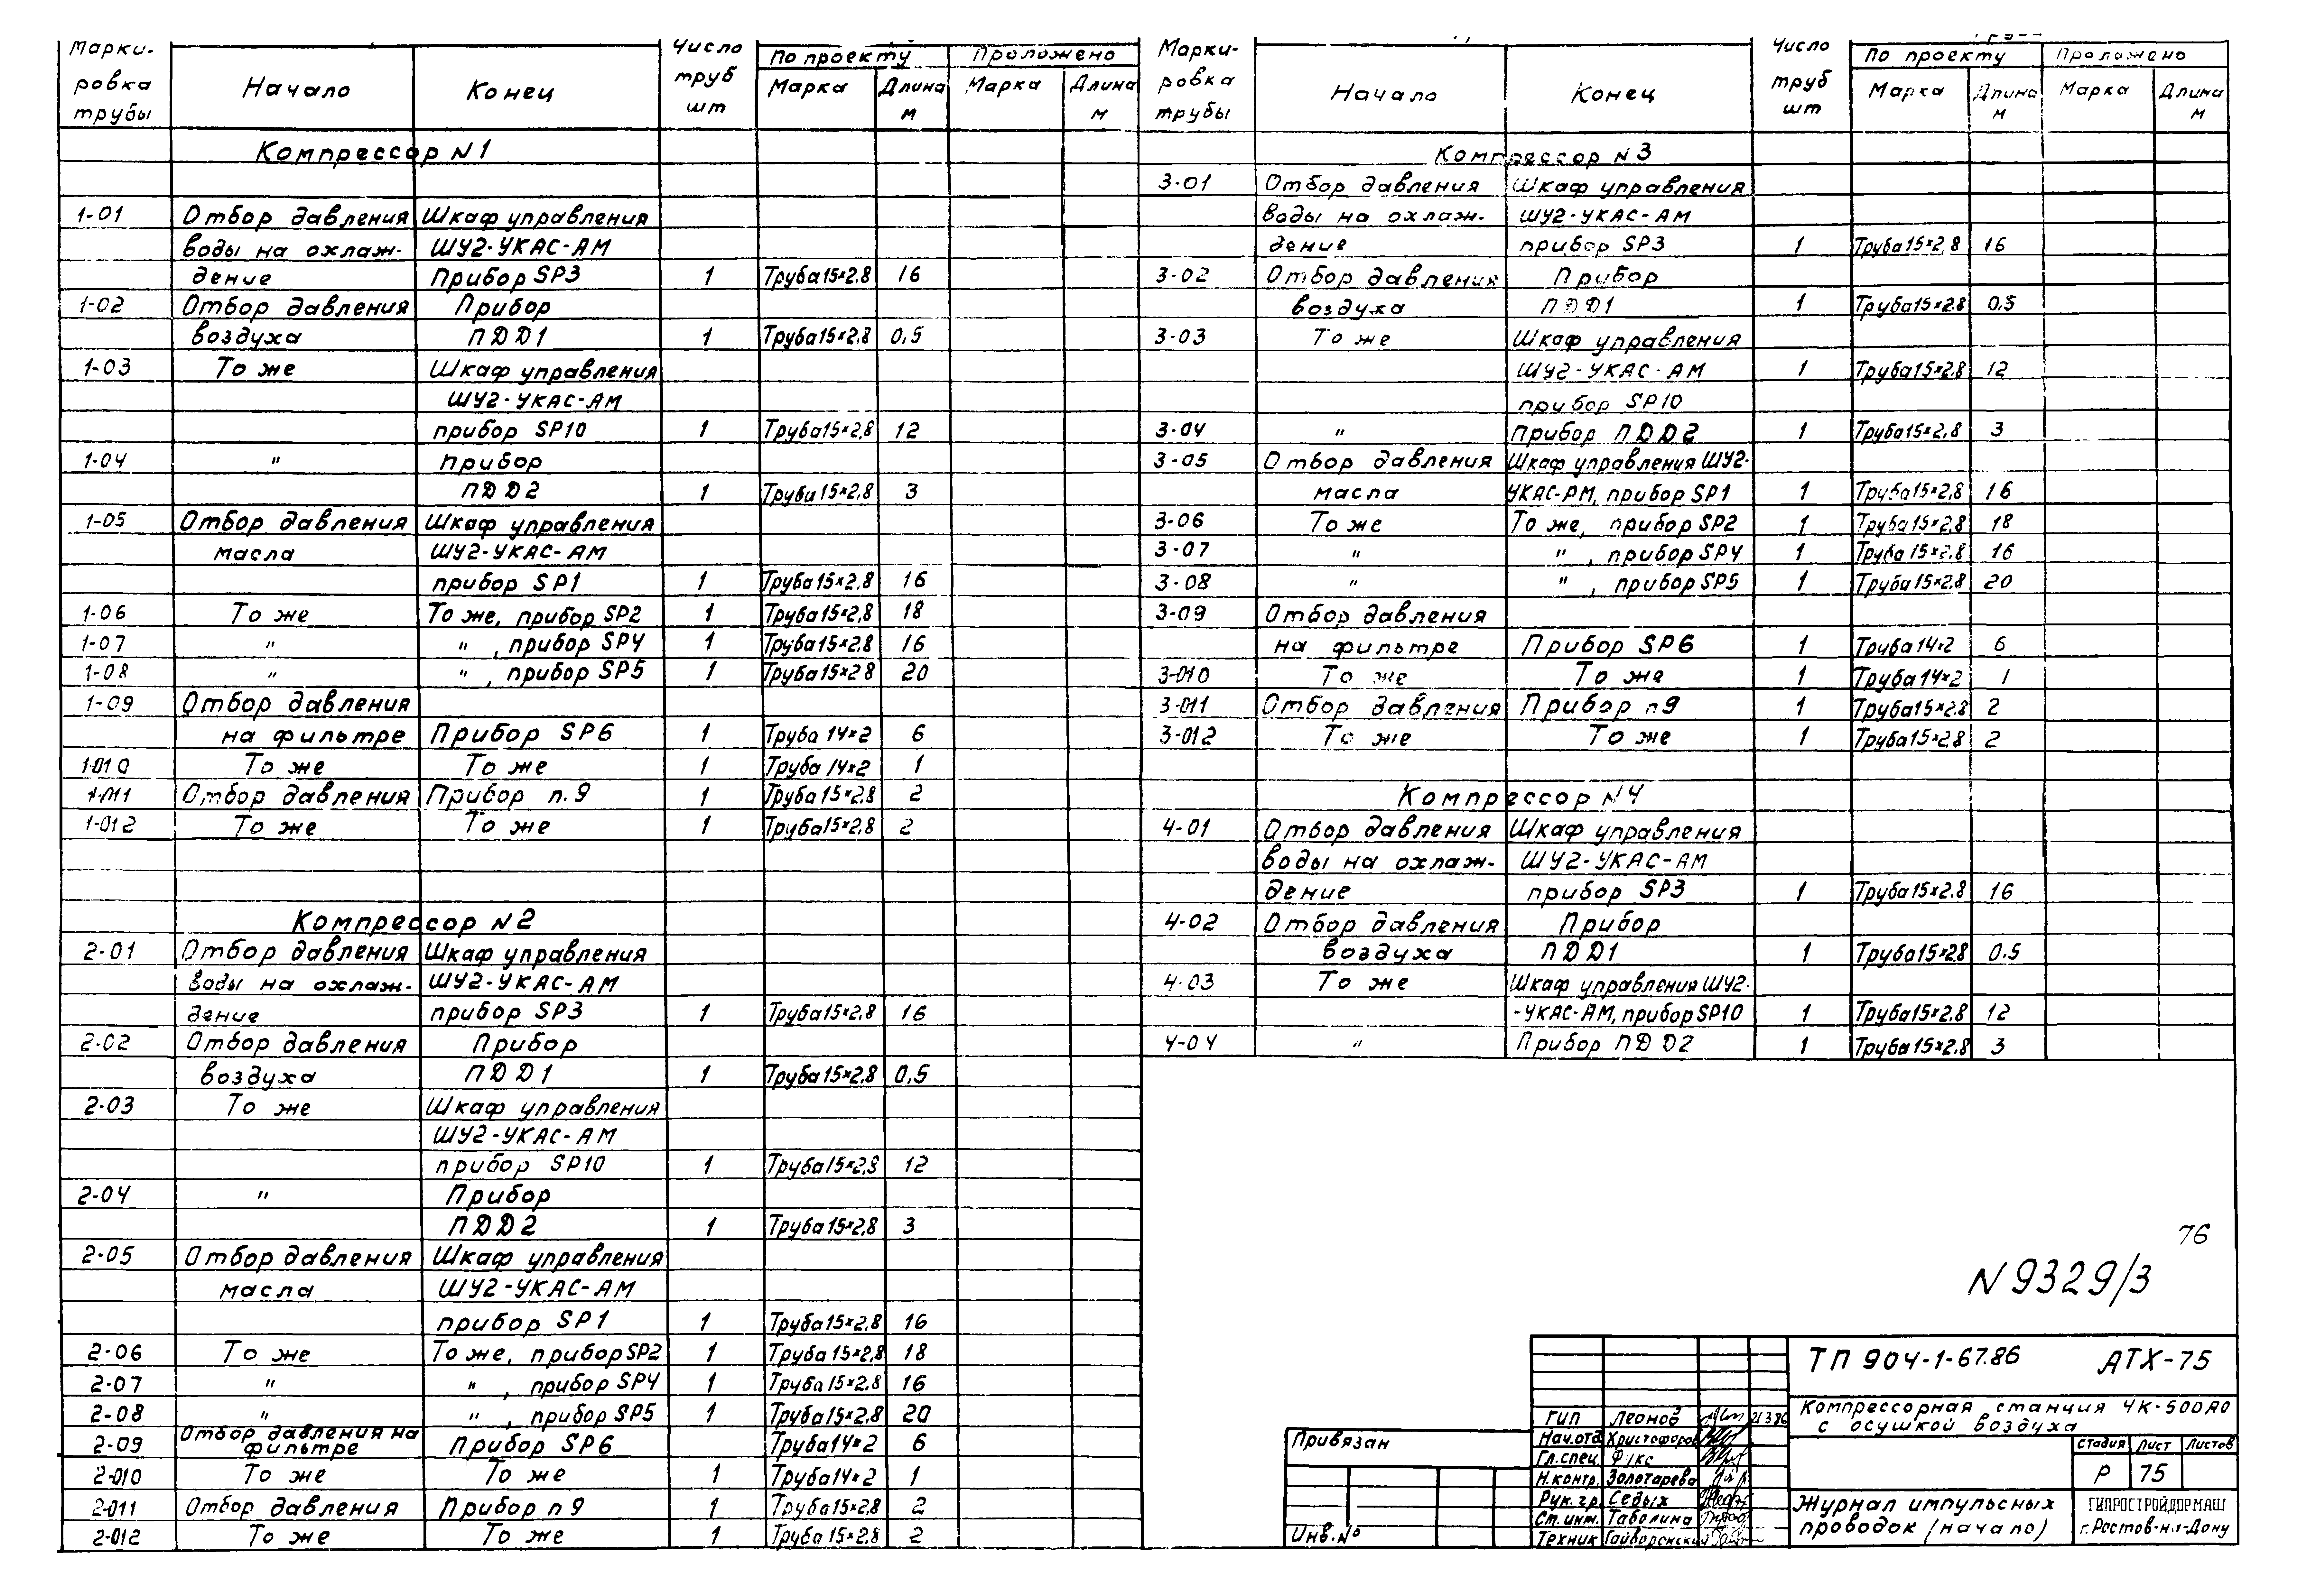 Марки- Число По проекту Проложено
ровка Начало Конец труб Марка Длина Марка Длина
трубы шт м м
Компрессор N1
1-01 Отбор давления Шкаф управления
воды на охлаж- ШУ2-УКАС-АМ
дение Прибор SP3 1 Труба15×2,8 16
1-02 Отбор давления Прибор
воздуха ПДД1 1 Труба15×2,8 0,5
1-03 То же Шкаф управления
ШУ2-УКАС-АМ
прибор SP10 1 Труба15×2,8 12
1-04 " Прибор
ПДД2 1 Труба15×2,8 3
1-05 Отбор давления Шкаф управления
масла ШУ2-УКАС-АМ
прибор SP1 1 Труба15×2,8 16
1-06 То же То же, прибор SP2 1 Труба15×2,8 18
1-07 " " , прибор SP4 1 Труба15×2,8 16
1-08 " " , прибор SP5 1 Труба15×2 8 20
1-09 Отбор давления
на фильтре Прибор SP6 1 Труба 14×2 6
1-010 То же То же 1 Труба 14×2 1
1-011 Отбор давления Прибор п.9 1 Труба15×2,8 2
1-012 То же То же 1 Труба15×2,8 2
Компрессор N2
2-01 Отбор давления Шкаф управления
воды на охлаж- ШУ2-УКАС-АМ
дение прибор SP3 1 Труба15×2,8 16
2-02 Отбор давления Прибор
воздуха ПДД1 1 Труба15×2,8 0,5
2-03 То же Шкаф управления
ШУ2-УКАС-АМ
прибор SP10 1 Труба15×2,8 12
2-04 " Прибор
ПДД2 1 Труба15×2,8 3
2-05 Отбор давления Шкаф управления
масла ШУ2-УКАС-АМ
прибор SP1 1 Труба15×2,8 16
2-06 То же То же, прибор SP2 1 Труба15×2,8 18
2-07 " " , прибор SP4 1 Труба15×2,8 16
2-08 " " , прибор SP5 1 Труба15×2,8 20
Отбор давления на
2-09 фильтре Прибор SP6 Труба14×2 6
2-010 То же То же 1 Труба14×2 1
2-011 Отбор давления Прибор п9 1 Труба15×2,8 2
2-012 То же То же 1 Труба15×2,8 2
Марки- Число По проекту Проложено
ровка Начало Конец труб Марка Длина Марка Длина
трубы шт м м
Компрессор N3
3-01 Отбор давления Шкаф управления
воды на охлаж- ШУ2-УКАС-АМ
дение прибор SP3 1 Труба15×2,8 16
3-02 Отбор давления Прибор
воздуха ПДД1 1 Труба15×2,8 0,5
3-03 То же Шкаф управления
ШУ2-УКАС-АМ 1 Труба15×2,8 12
прибор SP10
3-04 " Прибор ПДД2 1 Труба15×2,8 3
3-05 Отбор давления Шкаф управления ШУ2-
масла УКАС-АМ, прибор SP1 1 Труба15×2,8 16
3-06 То же То же, прибор SP2 1 Труба15×2,8 18
3-07 " " , прибор SP4 1 Труба 15×2,8 16
3-08 " " , прибор SP5 1 Труба15×2,8 20
3-09 Отбор давления
на фильтре Прибор SP6 1 Труба14×2 6
3-010 То же То же 1 Труба14×2 1
3-011 Отбор давления Прибор п9 1 Труба15×2,8 2
3-012 То же То же 1 Труба15×2,8 2
Компрессор N4
4-01 Отбор давления Шкаф управления
воды на охлаж- ШУ2-УКАС-АМ
дение прибор SP3 1 Труба15×2,8 16
4-02 Отбор давления Прибор
воздуха ПДД1 1 Труба15×2,8 0,5
4-03 То же Шкаф управления ШУ2-
-УКАС-АМ, прибор SP10 1 Труба15×2,8 12
4-04 " Прибор ПДД2 1 Труба15×2,8 3
76
N9329/3
Привязан
Инв.№
ГИП Леонов 21386
Нач.отд Христофоров
Гл.спец. Фукс
Н.контр. Золотарева
Рук.гр. Седых
Ст.инж. Таболина
Техник Гайворонский
ТП 904-1-67.86 АТХ-75
Компрессорная станция 4К-500А0
с осушкой воздуха
Стадия Лист Листов
Р 75
Журнал импульсных
проводок (начало)
ГИПРОСТРОЙДОРМАШ
г.Ростов-на-Дону